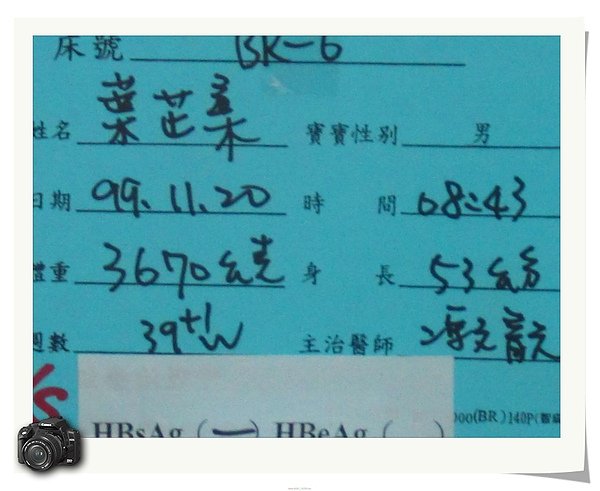 床號 BR-6
姓名 葉芷 寶寶性別 男
日期 99.11.20 時間 08:43
體重 3670公克 身長 53公分
週數 39+1W 主治醫師 馮文
HBsAg (一) HBeAg ( ) 000(BR)140P(